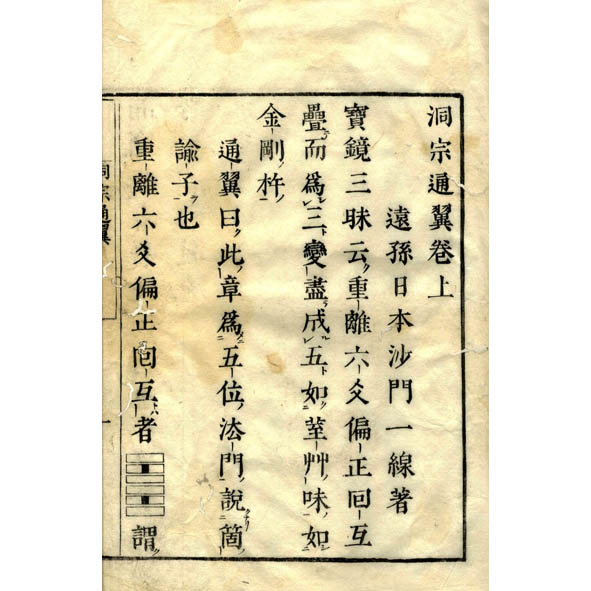 洞宗通翼卷上
遠孫日本沙門一線著
寶鏡三昧云重離六爻偏正囘互
疊而爲三變盡成五如荎艸味如
金剛杵
通翼曰此章爲五位法門說箇
諭子也
重離六爻偏正囘互者䷝謂
洞宗通翼